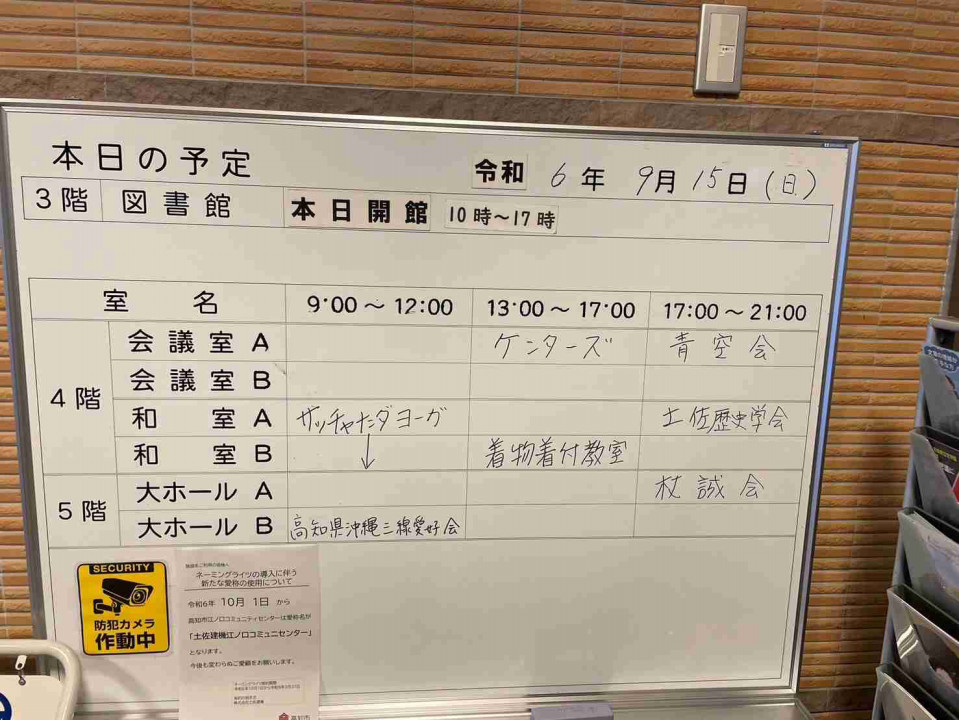 本日の予定
令和 6年 9月 15日(日)
3階 図書館 本日開館 10時～17時
室名 9:00～12:00 13:00～17:00 17:00～21:00
4階
会議室A ケンターズ 青空会
会議室B
和室A サッチャナンダヨーガ 土佐歴史学会
和室B ↓ 着物着付教室
5階
大ホールA 杖誠会
大ホールB 高知県沖縄三線愛好会
SECURITY
防犯カメラ
作動中
施設をご利用の皆様へ
ネーミングライツの導入に伴う
新たな愛称の使用について
令和6年 10月 1日 から
高知市江ノ口コミュニティセンターは愛称名が
「土佐建機江ノ口コミュニセンター」
となります。
今後も変わらぬご愛顧をお願いします。
高知市